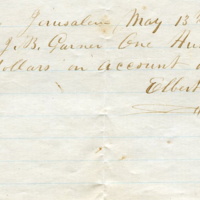 Jerusalem, May 13
J. B. Garner One Hun
Dollars on account o
Elbert